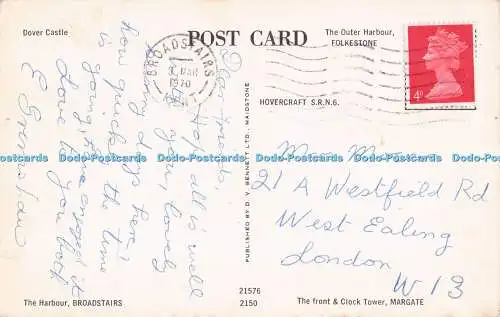 Dover Castle
POST CARD
The Outer Harbour,
FOLKESTONE
BROADSTAIRS
MAR
1970
4D
HOVERCRAFT S.R.N.6.
Dear Friends,
Hope all is well
with you, lovely
sunny days here
how quick the time
is going, have enjoyed it
Love to you both
E
PUBLISHED BY D. V. BENNETT LTD., MAIDSTONE
21 A Westfield Rd
West Ealing
London
W 13
Dodo-Postcards Dodo-Postcards Dodo-Postcards Dodo-Postcards Dodo-Postcards
The Harbour, BROADSTAIRS
21576
2150
The front & Clock Tower, MARGATE